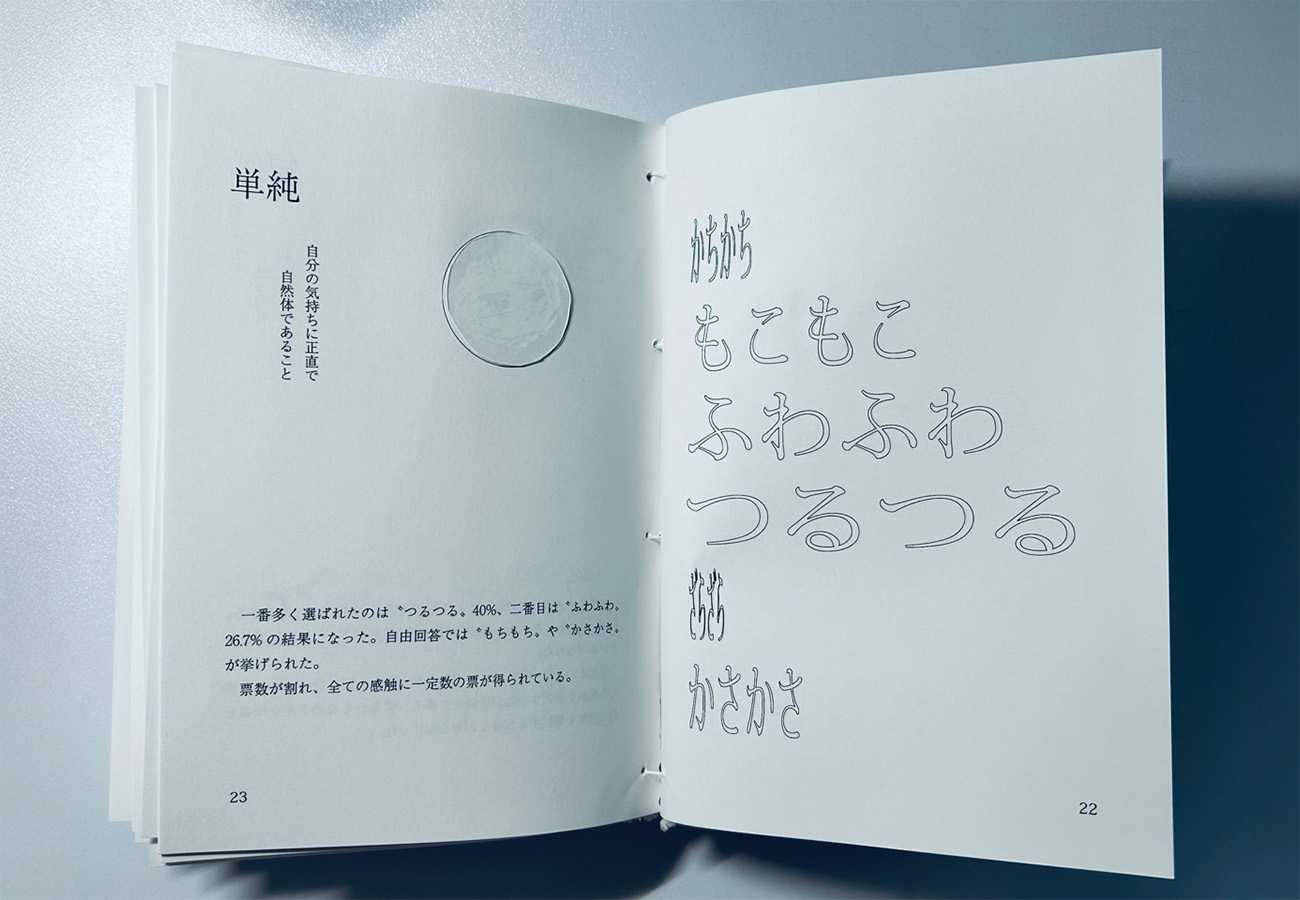 かちかち
もこもこ
ふわふわ
つるつる
ざらざら
かさかさ
22
単純
自分の気持ちに正直で
自然体であること
一番多く選ばれたのは〝つるつる〟40%、二番目は〝ふわふわ〟
26.7% の結果になった。自由回答では〝もちもち〟や〝かさかさ〟
が挙げられた。
票数が割れ、全ての感触に一定数の票が得られている。
23